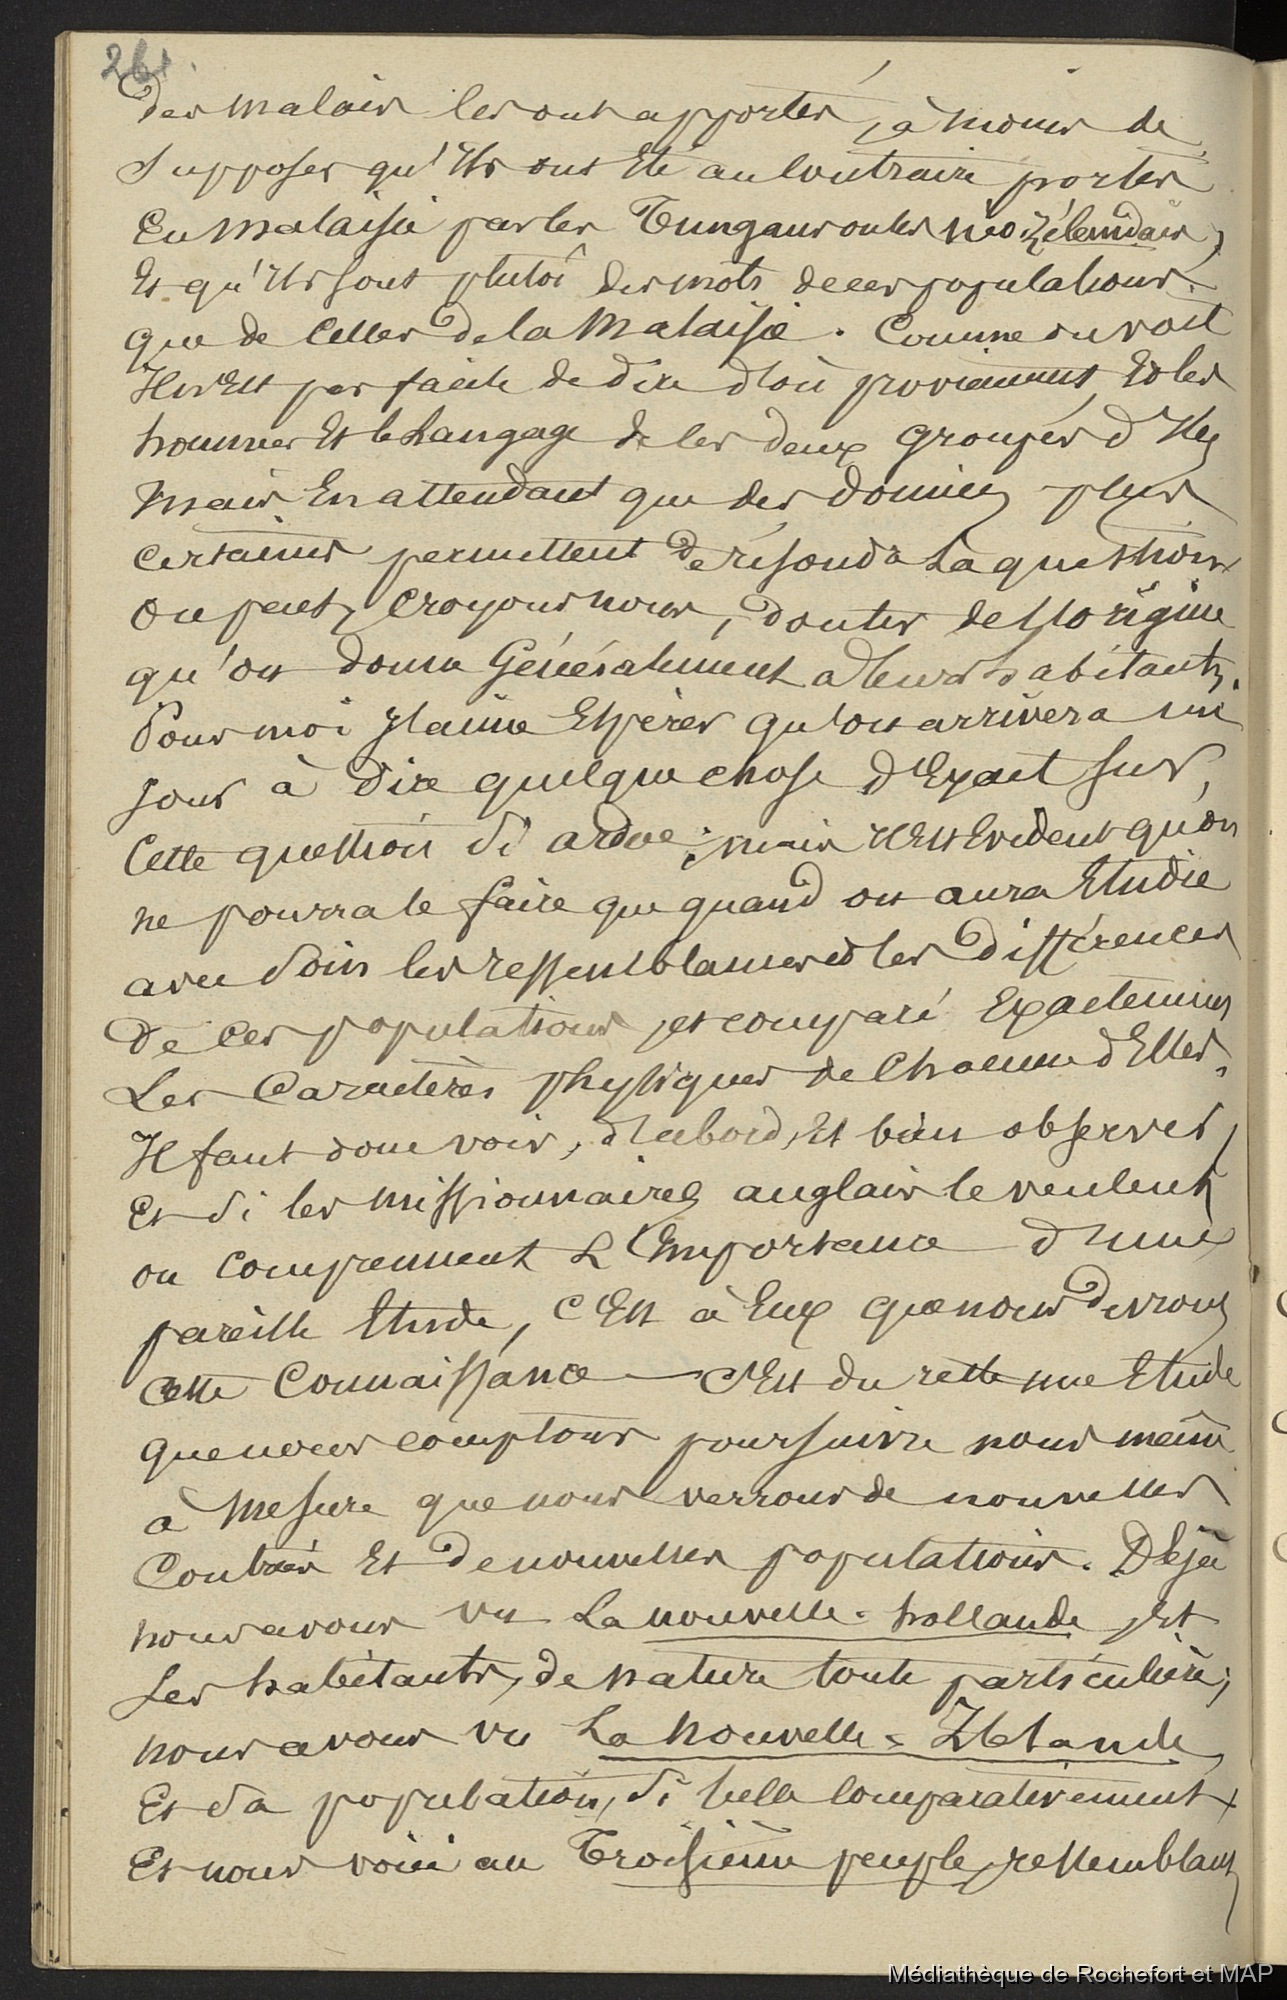 261.
des malais les ont apportés, à moins de
supposer qu'ils ont été au contraire portés
en malaisie par les Tungans ou les néo-zélandais,
et qu'ils sont plutôt des mots de ces populations
que de celles de la Malaisie. Comme on voit
Il n'est pas facile de dire d'où proviennent, et les
hommes et le Langage de les deux groupes d'Iles
mais en attendant que des données plus
certaines permettent de résoudre La question
on peut, croyons nous, douter de l'origine
qu'on donne Généralement à leurs habitants.
Pour moi J'aime Espérer qu'on arrivera un
jour à dire quelque chose d'Exact sur
Cette question si ardue; mais il est Evident qu'on
ne pourra le faire que quand on aura Etudié
avec soin les ressemblances et les différences
de ces populations, et comparé Exactement
Les Caractères physiques de Chacune d'Elles.
Il faut donc voir, d'abord, et bien observer,
et si les missionnaires anglais le veulent
ou comprennent L'Importance d'une
pareille Etude, C'Est à Eux que nous devrons
cette Connaissance — C'Est du reste une Etude
que nous comptons poursuivre nous même
à mesure que nous verrons de nouvelles
Contrées et de nouvelles populations. Déjà
nous avons vu La nouvelle-hollande, et
Ses habitants, de nature toute particulière;
nous avons vu La nouvelle-Zélande,
et sa population, si belle comparativement
et nous voici au Troisième peuple, ressemblant
Médiathèque de Rochefort et MAP